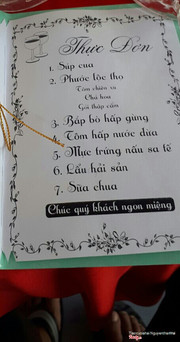 Thực Đơn
1. Súp cua
2. Phước lộc thọ
Tôm chiên xù
Chả hoa
Gỏi thập cẩm
3. Bắp bò hấp gừng
4. Tôm hấp nước dừa
5. Mực trứng nấu sa tế
6. Lẩu hải sản
7. Sữa chua
Chúc quý khách ngon miệng